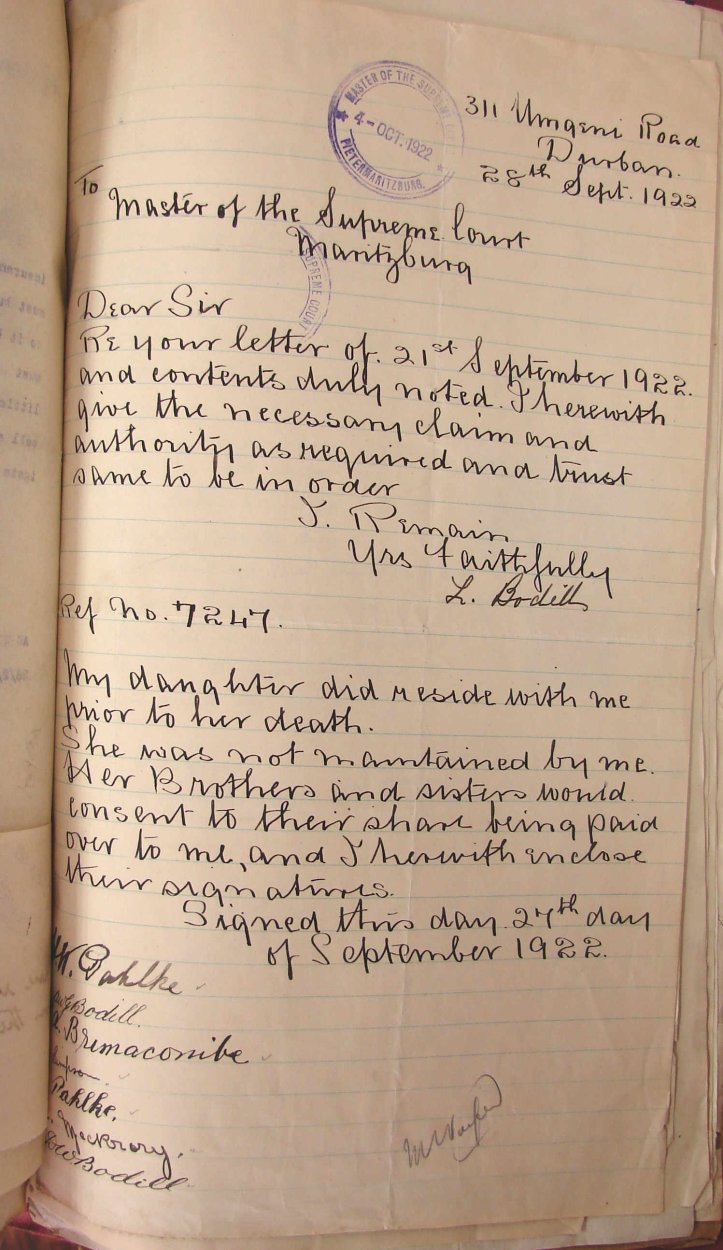 311 Umgeni Road
Durban.
28th Sept. 1922
MASTER OF THE SUPREME
4-OCT.1922
PIETERMARITZBURG.
To
Master of the Supreme Court
Maritzburg
SUPREME COURT
Dear Sir
Re your letter of. 21st September 1922.
and contents duly noted. I herewith
give the necessary claim and
authority as required and trust
same to be in order
I. Remain
Yrs Faithfully
L. Bodill
Ref No. 7247.
My daughter did reside with me
prior to her death.
She was not maintained by me.
Her Brothers and sisters would.
consent to their share being paid
over to me, and I herewith enclose
their signatures.
Signed this day. 27th day
of September 1922.
Pahlke
Bodill.
Bremacombe
Pahlke.
Bodill